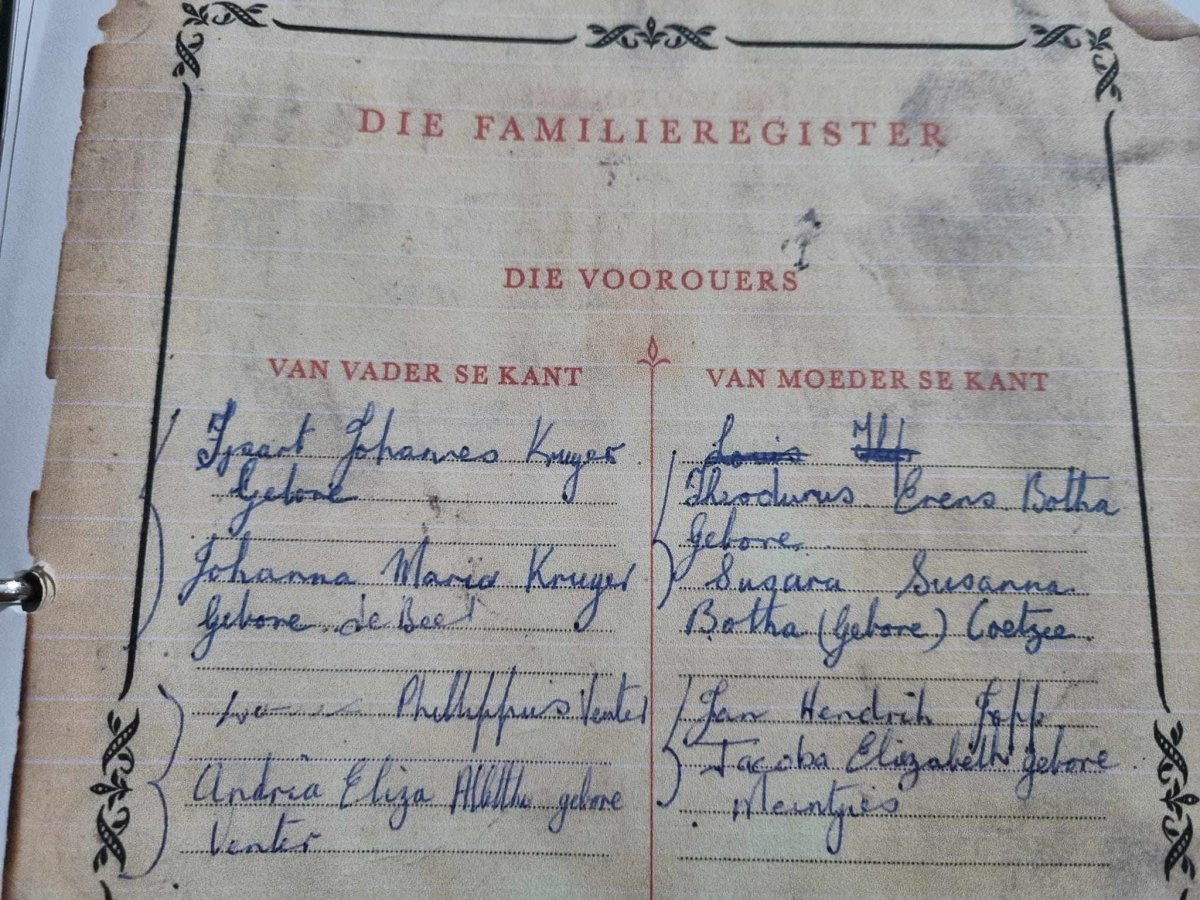 DIE FAMILIEREGISTER
DIE VOOROUERS
VAN VADER SE KANT
Johannes Kruger
Gebore
Johanna Maria Kruger
Gebore de Beer
Phillippus Venter
Andria Eliza gebore
Venter
VAN MOEDER SE KANT
Louis
Theodurus Erens Botha
Gebore
Sugara Susanna
Botha (Gebore) Coetzee.
Jan Hendrik
Jacoba Elizabeth gebore
Meintjies